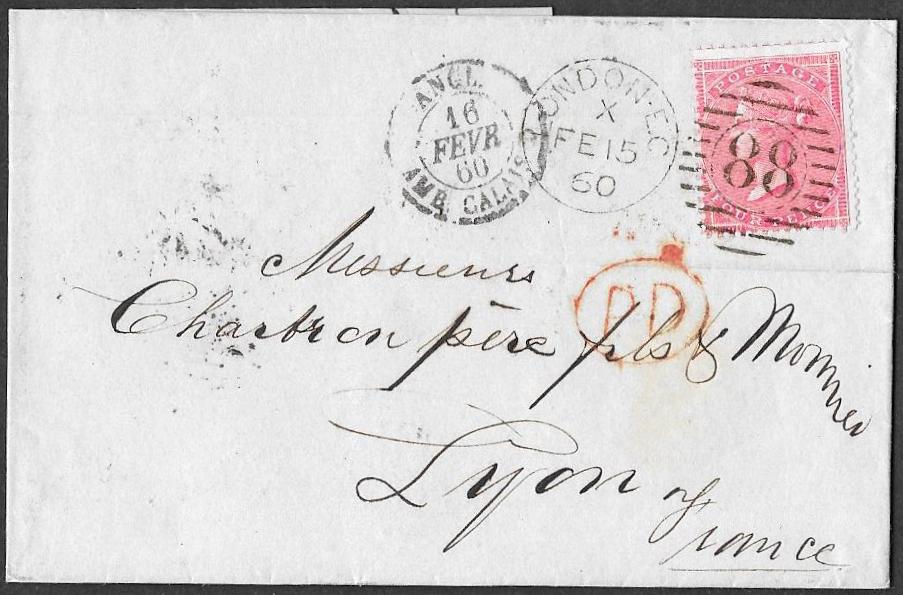 ANGL.
16
FEVR
60
AMB. CALAIS
LONDON·E.C
X
FE 15
60
POSTAGE
88
FOUR PENCE
PD
Messieurs
Chartron père fils & Monnier
Lyon
France